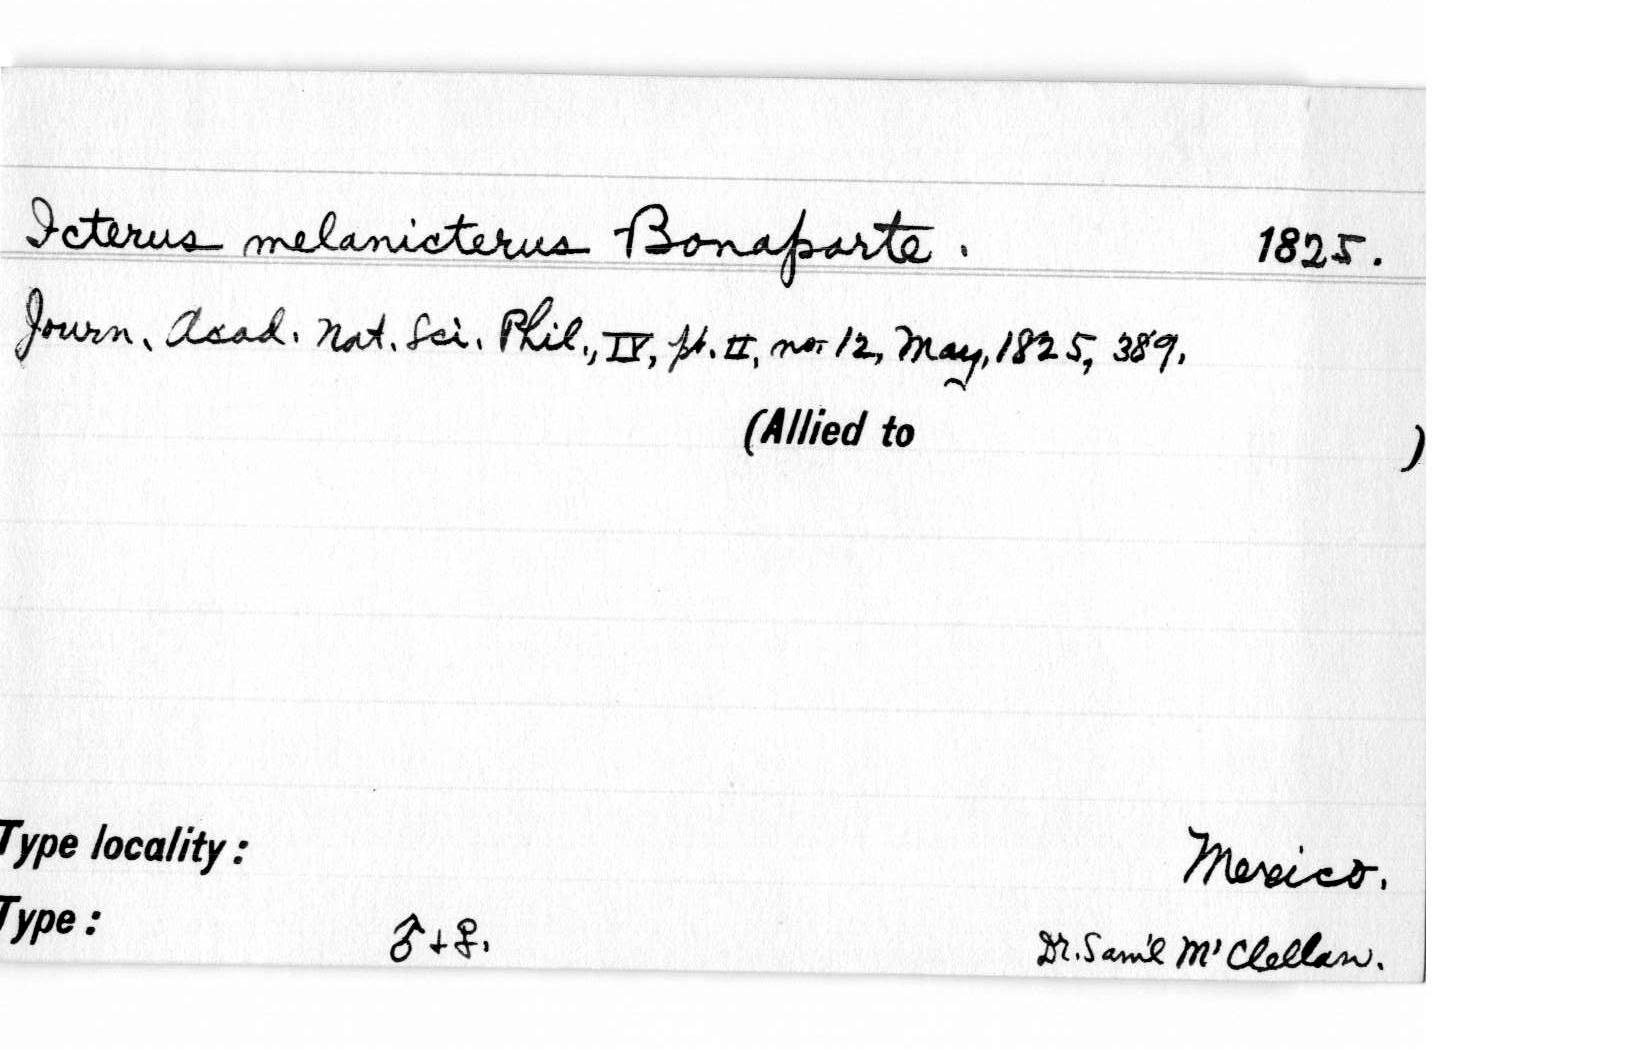 Icterus melanicterus Bonaparte. 1825.
Journ. Acad. Nat. Sci. Phil., IV, pt. II, no. 12, May, 1825, 389.
(Allied to )
Type locality: Mexico.
Type: ♂ + ♀. Dr. Sam'l M'Clellan.